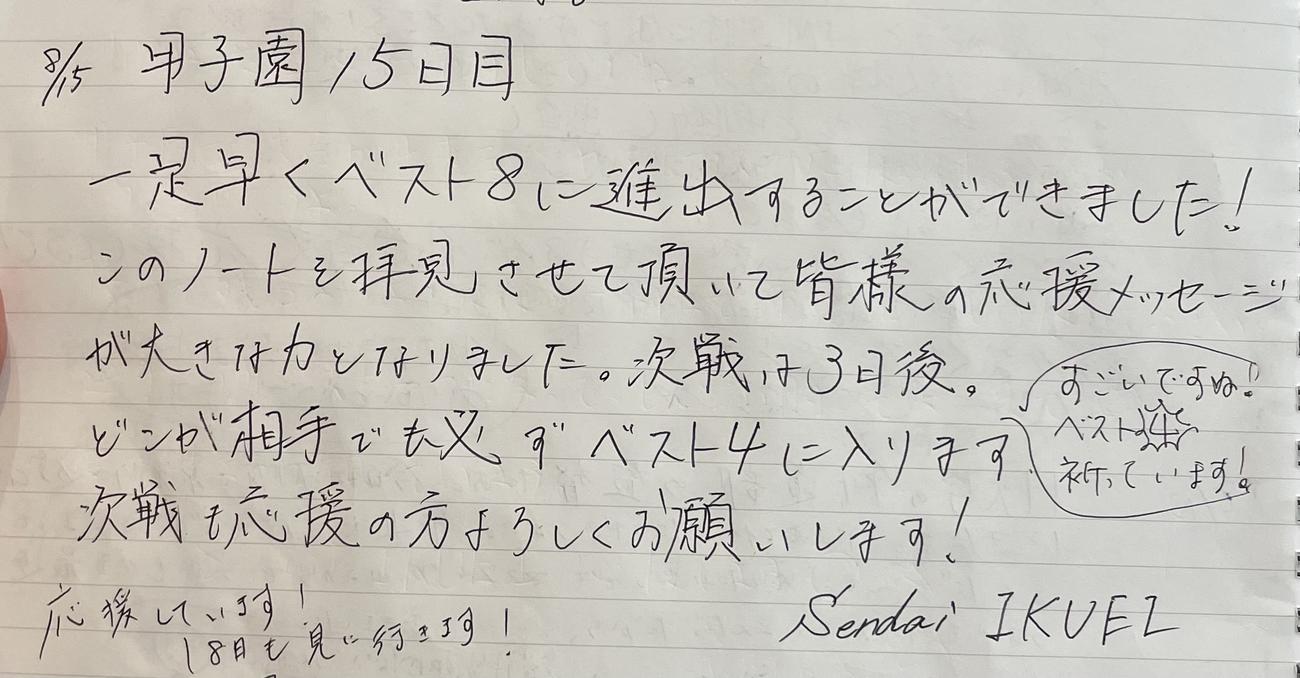 8/15 甲子園15日目
一足早くベスト8に進出することができました!
このノートを拝見させて頂いて皆様の応援メッセージ
が大きな力となりました。次戦は3日後。
どこが相手でも必ずベスト4に入ります
次戦も応援の方よろしくお願いします!
すごいですね!
ベスト4
祈っています!
応援しています!
18日も見に行きます!
Sendai IKUEI